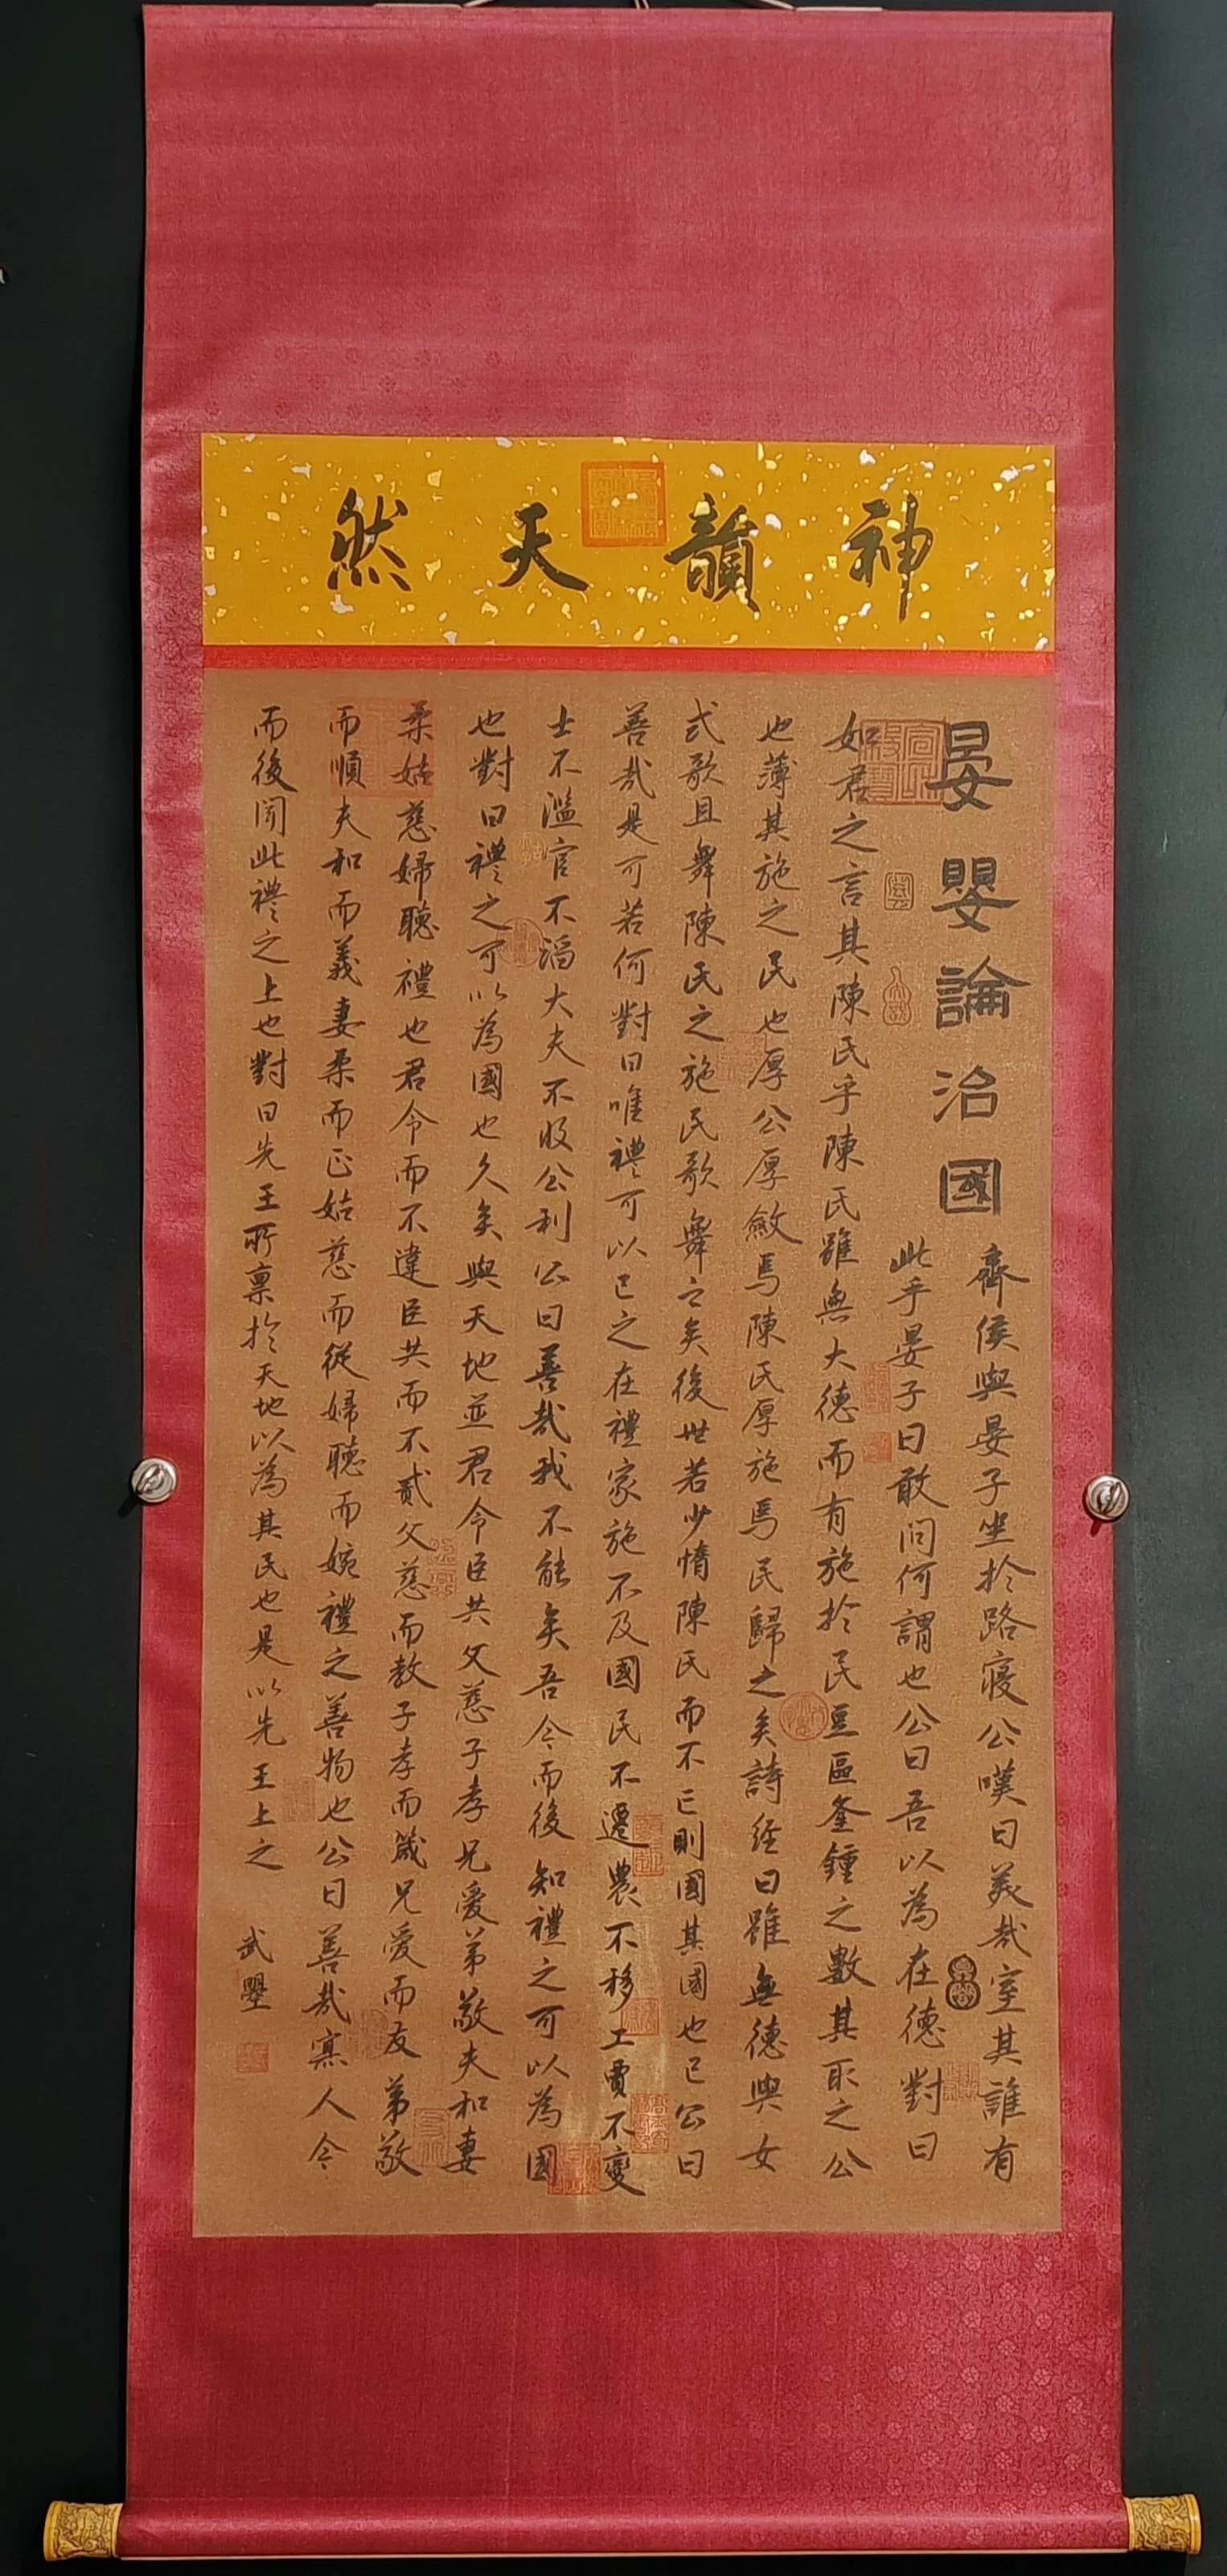 神韻天然
晏嬰論治國
齊侯與晏子坐於路寢公嘆曰美哉室其誰有
此乎晏子曰敢問何謂也公曰吾以為在德對曰
如君之言其陳民乎陳民雖無大德而有施於民豆區釜鍾之數其取之公
也薄其施之民也厚公厚斂焉陳民厚施焉民歸之矣詩經曰雖無德與女
式歌且舞陳民之施民歌舞之矣後世若少惰陳民而不亡則國其國也已公曰
善哉是可若何對曰唯禮可以已之在禮家施不及國民不遷農不移工賈不變
士不濫官不滔大夫不收公利公曰善哉我不能矣吾今而後知禮之可以為國
也對曰禮之可以為國也久矣與天地並君令臣共父慈子孝兄愛弟敬夫和妻
柔姑慈婦聽禮也君令而不違臣共而不貳父慈而教子孝而箴兄愛而友弟敬
而順夫和而義妻柔而正姑慈而從婦聽而婉禮之善物也公曰善哉寡人今
而後聞此禮之上也對曰先王所稟於天地以為其民也是以先王上之
武曌